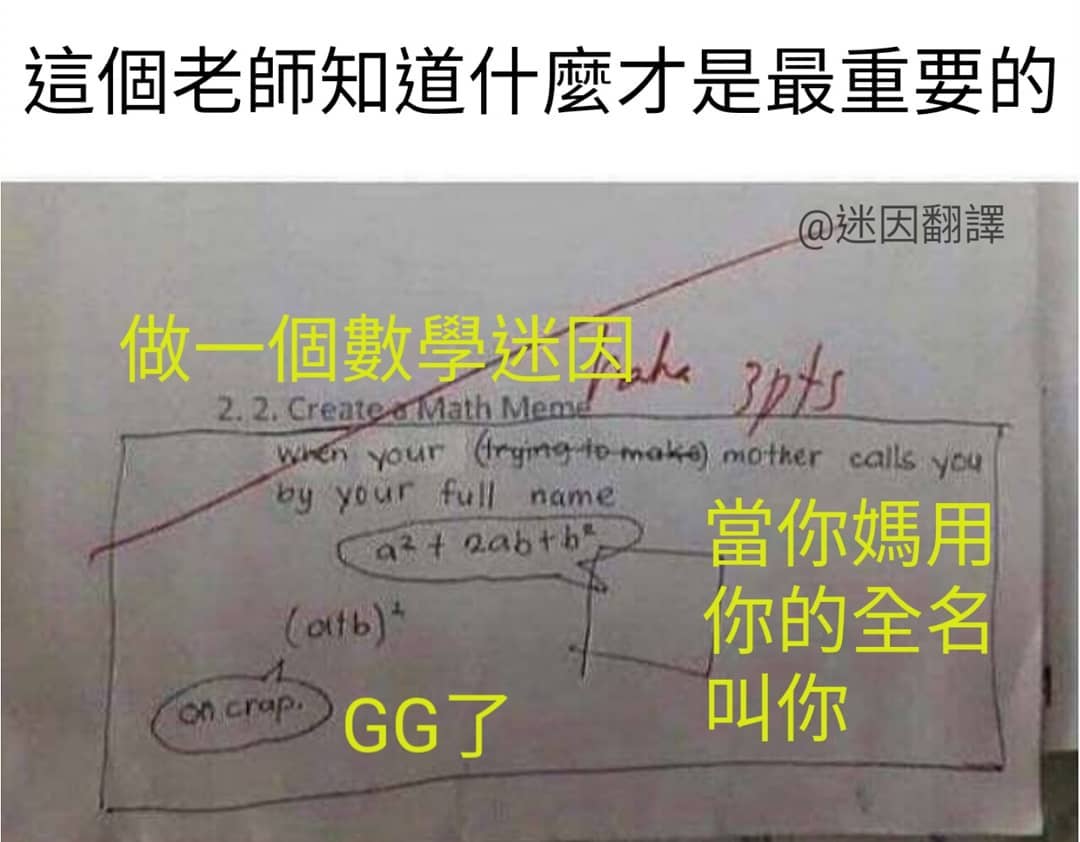 這個老師知道什麼才是最重要的
@迷因翻譯
做一個數學迷因
haha 3pts
2. 2. Create a Math Meme
when your (trying to make) mother calls you
by your full name
a² + 2ab + b²
當你媽用
你的全名
叫你
(a+b)²
oh crap.
GG了